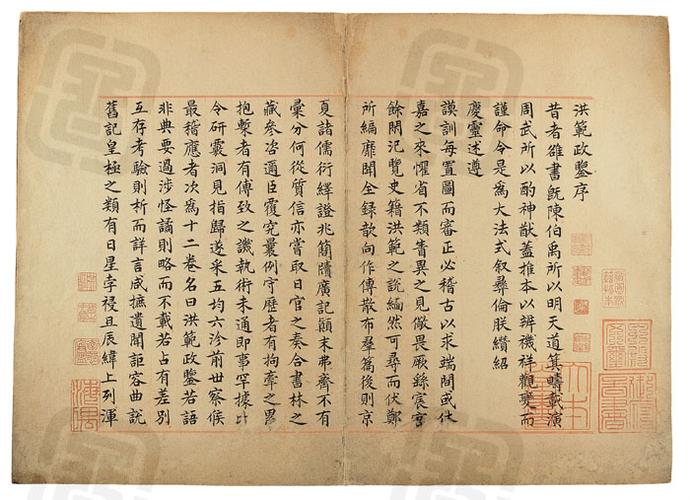 洪範政鑒序
昔者雒書旣陳伯禹所以明天道箕疇載演
周武所以酌神猷蓋推本以辨禨祥觀變而
謹命令是為大法式叙彞倫朕纘紹
慶靈述遵
謨訓每置圖而審正必稽古以求端間或休
嘉之來懼省不類眚異之見儆畏厥繇宸宮
餘閒汜覽史籍洪範之說緬然可尋而伏鄭
所編靡聞全録歆向作傳散布羣篇後則京
夏諸儒衍繹證兆簡牘廣記顛末弗齊不有
彙分何從質信亦嘗取日官之奏合書林之
藏參咨邇臣覆究曩例守歷者有拘牽之累
抱槧者有傅致之譏執術未通即事罕據比
令研覈洞見指歸遂采五均六沴前世察候
最稽應者次為十二卷名曰洪範政鑒若語
非典要過涉怪譎則略而不載若占有差別
互存考驗則析而詳言咸摭遺聞詎容曲說
舊記皇極之類有日星孛祲且辰緯上列渾